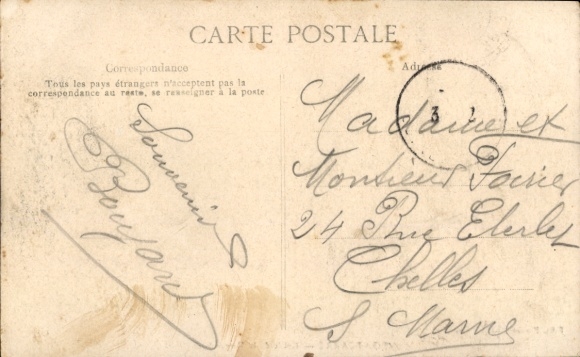 CARTE POSTALE
Correspondance
Tous les pays étrangers n'acceptent pas la
correspondance au resto, se renseigner à la poste
Souvenir
Adresse
3 1
Madame et
Monsieur
24 Rue
Chelles
S Marne